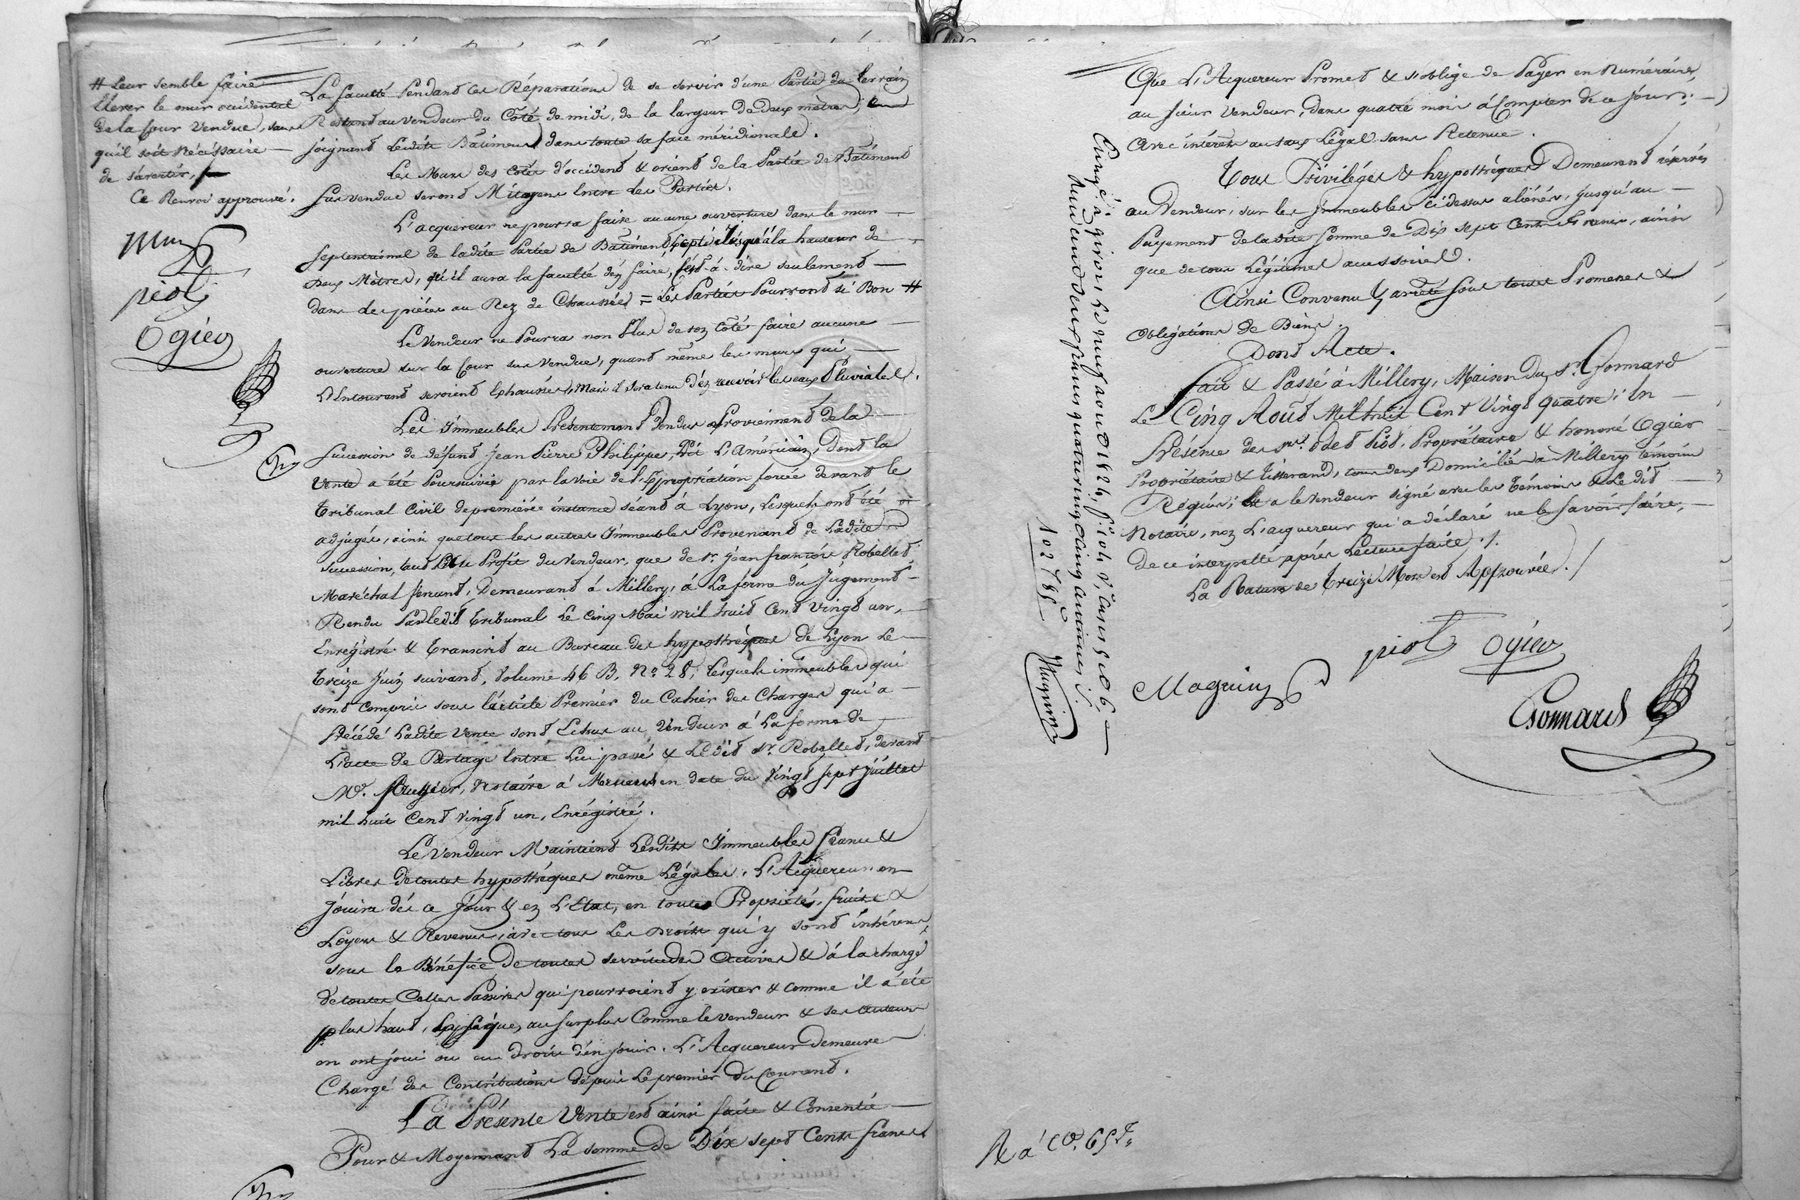 # Leur semble faire
Elever le mur occidental
de la Cour Vendue, sans
qu'il soit Nécéssaire —
de s'arreter,
Ce Renvoi approuvé.
piot
Ogier
La faculté Pendant les Réparations de se servir d'une Partie du terrain
Restant au Vendeur du Côté de midi, de la largeur de deux mètres,
joignant Ledit Bâtiment dans toute sa face méridionale.
Les Murs des Côtés d'occident & orient de la Partie de Bâtiment
Sus vendue seront Mitoyens Entre les Parties.
L'acquereur ne pourra faire aucune ouverture dans le mur —
Septentrional de ladite Partie de Bâtiment, jusqu'à la hauteur de —
deux Mètres, qu'il aura la faculté d'en faire, c'est-à-dire seulement —
dans des pièces au Rez de Chaussée = Les Parties Pourront si Bon #
Le Vendeur ne Pourra non Plus de son Côté faire aucune —
ouverture sur la Cour sus Vendue, quand même les murs qui —
L'Entourent seroient Exhaussés, Mais il sera tenu d'en recevoir les eaux Pluviales.
Les Immeubles Présentement Vendus Proviennent de la —
Succession de défunt Jean Pierre Philippe, dit L'Américain, Dont la
Vente a été Poursuivie par la voie de l'Expropriation forcée devant le
Tribunal Civil de première instance séant à Lyon, Lesquels ont été
adjugés, ainsi que tous les autres Immeubles Provenant de Ladite
succession, au Profit du Vendeur, que de Sr. Jean françois Robellet
Maréchal ferrant, Demeurant à Millery, à La forme du Jugement
Rendu Par ledit Tribunal Le Cinq Mai mil huit Cent Vingt un, —
Enrégistré & transcrit au Bureau des hypothèques de Lyon Le —
Treize Juin suivant, Volume 46 B. No. 28, Lesquels immeubles qui
sont Compris sous l'article Premier du Cahier des Charges qui a —
Précédé Ladite Vente sont Echus au Vendeur à La forme de —
L'acte de Partage Entre Lui passé & Ledit Sr. Robellet, devant
Me. Notaire à en date du Vingt Sept Juillet
mil huit Cent Vingt un, Enrégistré.
Le Vendeur Maintient Lesdits Immeubles francs &
Libres de toutes hypothèques même Légales. L'Acquereur en
Jouira dès ce Jour & en L'Etat, en toute Propriété, fruits &
Loyers & Revenus, avec tous Les Droits qui y sont inhérens,
sous le Bénéfice de toutes servitudes Actives & à la charge
de toutes Celles Passives qui pourroient y exister & comme il a été
plus haut, Expliqué, au surplus Comme le vendeur & ses auteurs
en ont joui ou eu droit d'en jouir. L'Acquereur demeure
Chargé des Contributions dépuis le premier du Courant.
La Présente Vente est ainsi faite & Consentie —
Pour & Moyennant La somme de Dix sept Cents francs
Que L'Acquereur Promet & s'oblige de Payer en Numéraire,
au sieur Vendeur, dans quatre mois à Compter de ce Jour, —
avec intérêts au taux Légal sans Retenue.
Tous Priviléges & hypothèques Demeurent réservés
au Vendeur, sur les Immeubles ci dessus aliénés, jusqu'au —
Payement de ladite somme de Dix sept Cents francs, ainsi
que de tous Légitimes accessoires.
Ainsi Convenu & arrêté sous toutes Promesses &
Obligations de Biens.
Dont Acte.
Fait & Passé à Millery, Maison du Sr. Gonnard
Le Cinq Août Mil huit Cent Vingt quatre, En —
Présence des Srs. Odet Piot, Propriétaire & honoré Ogier
Propriétaire & Tisserand, tous deux Domiciliés à Millery témoins
Requis, & a le vendeur signé avec les témoins & Ledit —
Notaire, non L'acquereur qui a déclaré ne le savoir faire, —
de ce interpellé après Lecture faite.
La Rature de Treize Mots est Approuvée.
piot Ogier
Maguiny
Gonnard
Enrgé à givors Le neuf août 1824,
Reçu cent deux francs quatre vingt cinq centimes
102 f 85
R à Co. 65 f.